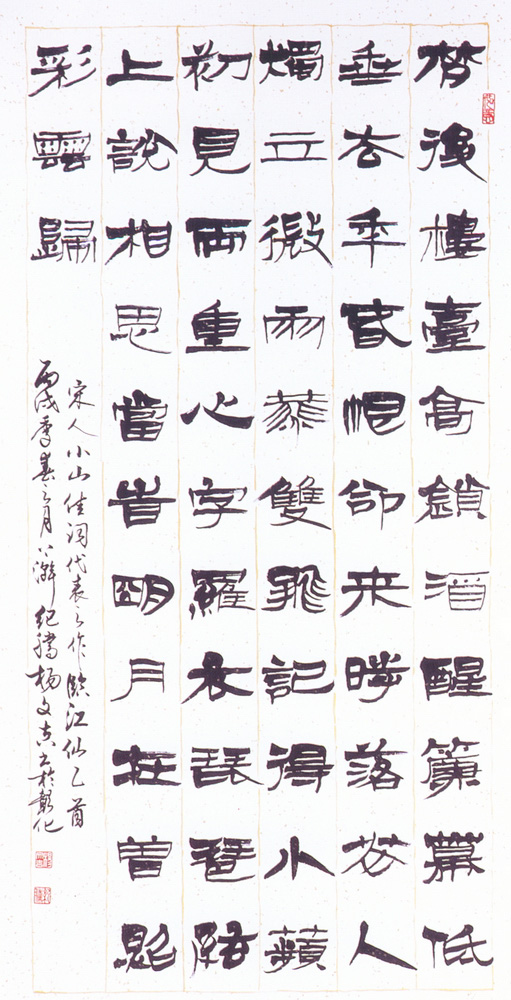 夢後樓臺高鎖酒醒簾幕低
垂去年春恨卻来時落花人
獨立微雨燕雙飛記得小蘋
初見兩重心字羅衣琵琶絃
上說相思當時明月在曾照
彩雲歸
宋人小山佳词代表之作臨江仙乙首
丙戌季春之月紀騰楊文吉書於彰化